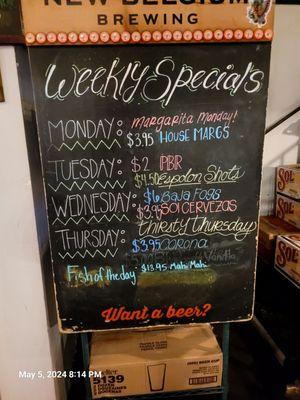 NEW BELGIUM
BREWING
Weekly Specials
MONDAY: margarita Monday!
$3.95 HOUSE MARGS
TUESDAY: $2 PBR
$4.50 Espolon Shots
WEDNESDAY: $6 Baja Fogs
$3.95 SOL CERVEZAS
THURSDAY: thirsty Thursday
$3.95 corona
Vanilla
Fish of the day $13.95 Mahi Mahi
Want a beer?
5139
SOL
SOL
SOL
May 5, 2024 8:14 PM